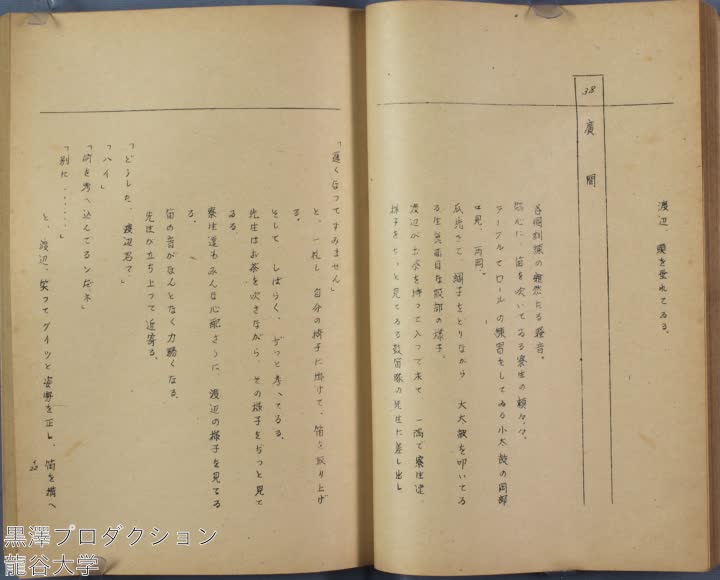 渡辺、頭を垂れてゐる。
38
廣間
各個訓練の雑然たる騒音。
熱心に、笛を吹いてゐる寮生の顔々々。
テーブルでロールの練習をしてゐる小太鼓の岡部
、山見、西岡。
気取って調子をとりながら 大太鼓を叩いてゐ
る生真面目な服部の様子。
渡辺がお茶を持って入って来て、一隅で寮生達の
様子をじっと見てゐる鼓笛隊の先生に差し出し
「遅くなつてすみません」
と、一礼し 自分の椅子に掛けて、笛を取り上げ
る。
そして しばらく、ぢっと考へてゐる。
先生はお茶を吹きながら、その様子をぢっと見て
ゐる。
寮生達もみんな心配さうに、渡辺の様子を見てゐ
る。
笛の音がなんとなく力弱くなる。
先生が立ち上って近寄る。
「どうした、渡辺君？」
「ハイ」
「何を考へ込んでるンだネ」
「別に……」
と、渡辺、笑ってグイッと姿勢を正し、笛を構へ
黒澤プロダクション
龍谷大学